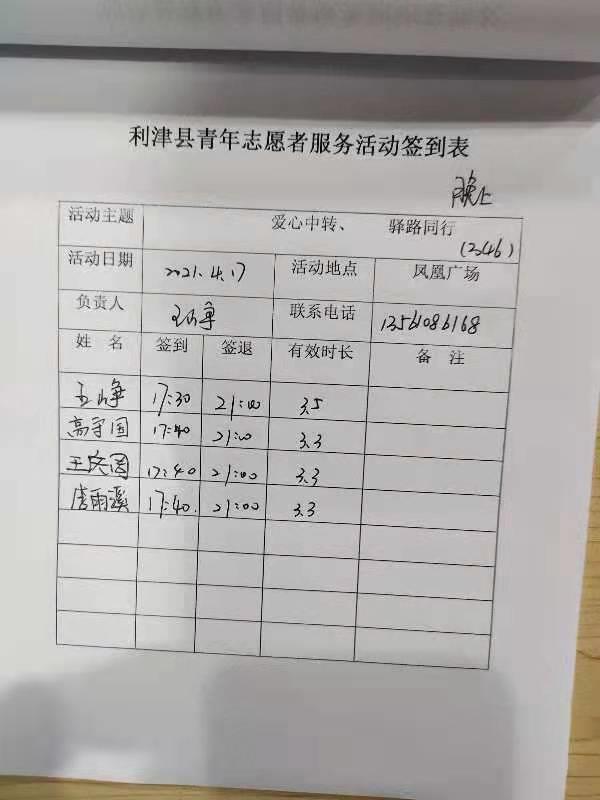 利津县青年志愿者服务活动签到表
晚上
活动主题 爱心中转、 驿路同行
(246)
活动日期 2021.4.17 活动地点 凤凰广场
负责人 联系电话 13561086168
姓名 签到 签退 有效时长 备注
17:30 21:00 3.5
高守国 17:40 21:00 3.3
17:40 21:00 3.3
唐雨溪 17:40. 21:00 3.3